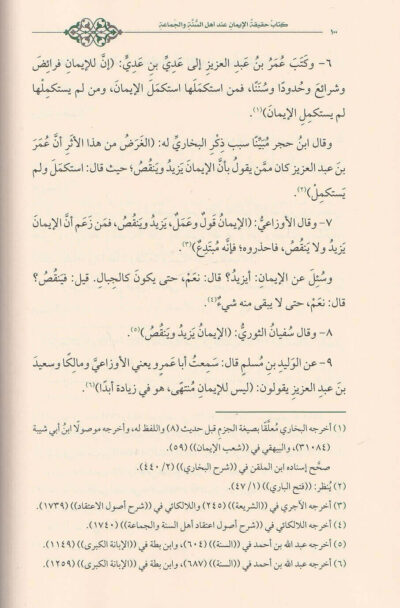 كتاب حقيقة الإيمان عند أهل السُّنَّةِ والجماعةِ
١٠٠
٦- وكَتَبَ عُمَرُ بنُ عَبدِ العزيزِ إلى عَدِيِّ بنِ عَدِيٍّ: (إنَّ للإيمانِ فرائِضَ
وشرائعَ وحُدودًا وسُنَنًا، فمن استكمَلَها استكمَلَ الإيمانَ، ومن لم يستكمِلْها
لم يستكمِلِ الإيمانَ)(١).
وقال ابنُ حجرٍ مُبَيِّنًا سببَ ذِكْرِ البخاريِّ له: (الغَرَضُ من هذا الأثَرِ أنَّ عُمَرَ
بنَ عبدِ العزيزِ كان ممَّن يقولُ بأنَّ الإيمانَ يَزيدُ ويَنقُصُ؛ حيث قال: استكمَلَ ولم
يَستكمِلْ)(٢).
٧- وقال الأوزاعيُّ: (الإيمانُ قَولٌ وعَمَلٌ، يَزيدُ ويَنقُصُ، فمَن زَعَم أنَّ الإيمانَ
يَزيدُ ولا يَنقُصُ، فاحذَروه؛ فإنَّه مُبتَدِعٌ)(٣).
وسُئِلَ عن الإيمانِ: أيزيدُ؟ قال: نعَمْ، حتى يكونَ كالجِبالِ. قيل: فيَنقُصُ؟
قال: نعَمْ، حتى لا يبقى منه شيءٌ(٤).
٨- وقال سُفيانُ الثوريُّ: (الإيمانُ يَزيدُ ويَنقُصُ)(٥).
٩- عن الوَليدِ بنِ مُسلمٍ قال: سَمِعتُ أبا عَمرٍو يعني الأوزاعيَّ ومالِكًا وسعيدَ
بنَ عبدِ العزيزِ يقولون: (ليس للإيمانِ مُنتَهًى، هو في زيادةٍ أبدًا)(٦).
(١) أخرجه البخاري مُعلَّقًا بصيغة الجزم قبل حديث (٨) واللفظ له، وأخرجه موصولًا ابنُ أبي شيبة
(٣١٠٨٤)، والبيهقي في ((شعب الإيمان)) (٥٩).
صحَّح إسناده ابن الملقن في ((شرح البخاري)) (٢/ ٤٤٠).
(٢) يُنظر: ((فتح الباري)) (١/ ٤٧).
(٣) أخرجه الآجري في ((الشريعة)) (٢٤٥) واللالكائي في ((شرح أصول الاعتقاد)) (١٧٣٩).
(٤) أخرجه اللالكائي في ((شرح أصول اعتقاد أهل السنة والجماعة)) (١٧٤٠).
(٥) أخرجه عبد الله بن أحمد في ((السنة)) (٦٠٤)، وابن بطة في ((الإبانة الكبرى)) (١١٤٩).
(٦) أخرجه عبد الله بن أحمد في ((السنة)) (٦٨٧)، وابن بطة في ((الإبانة الكبرى)) (١٢٥٩).